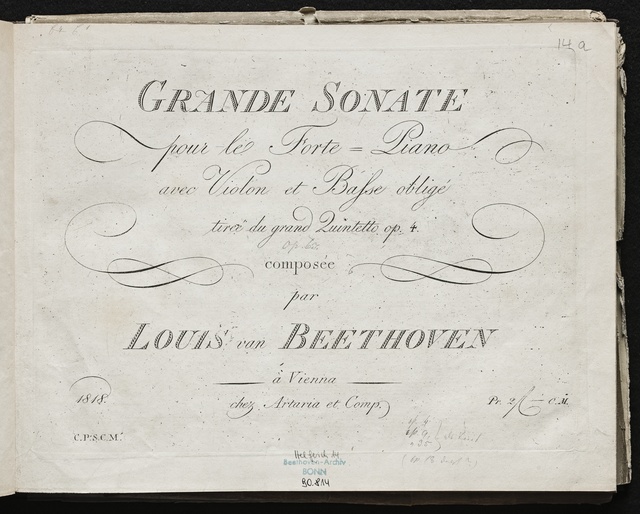 14a
GRANDE SONATE
pour le Forte = Piano
avec Violon et Basse obligé
tireé du grand Quintetto op. 4.
composée
par
LOUIS van BEETHOVEN
à Vienna
1818. chez Artaria et Comp. Pr. 2 f — C.M.
C.P.S.C.M.
Beethoven-Archiv
BONN
90.814